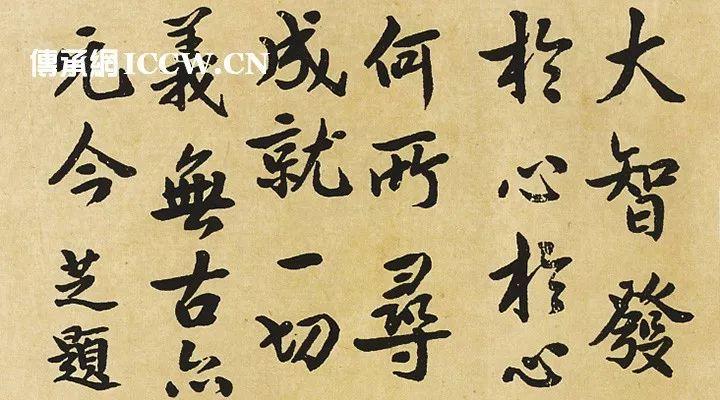 大智發
於心於心
何所尋
成就一切
義無古亦
无今芝題
傳承網ICCW.CN